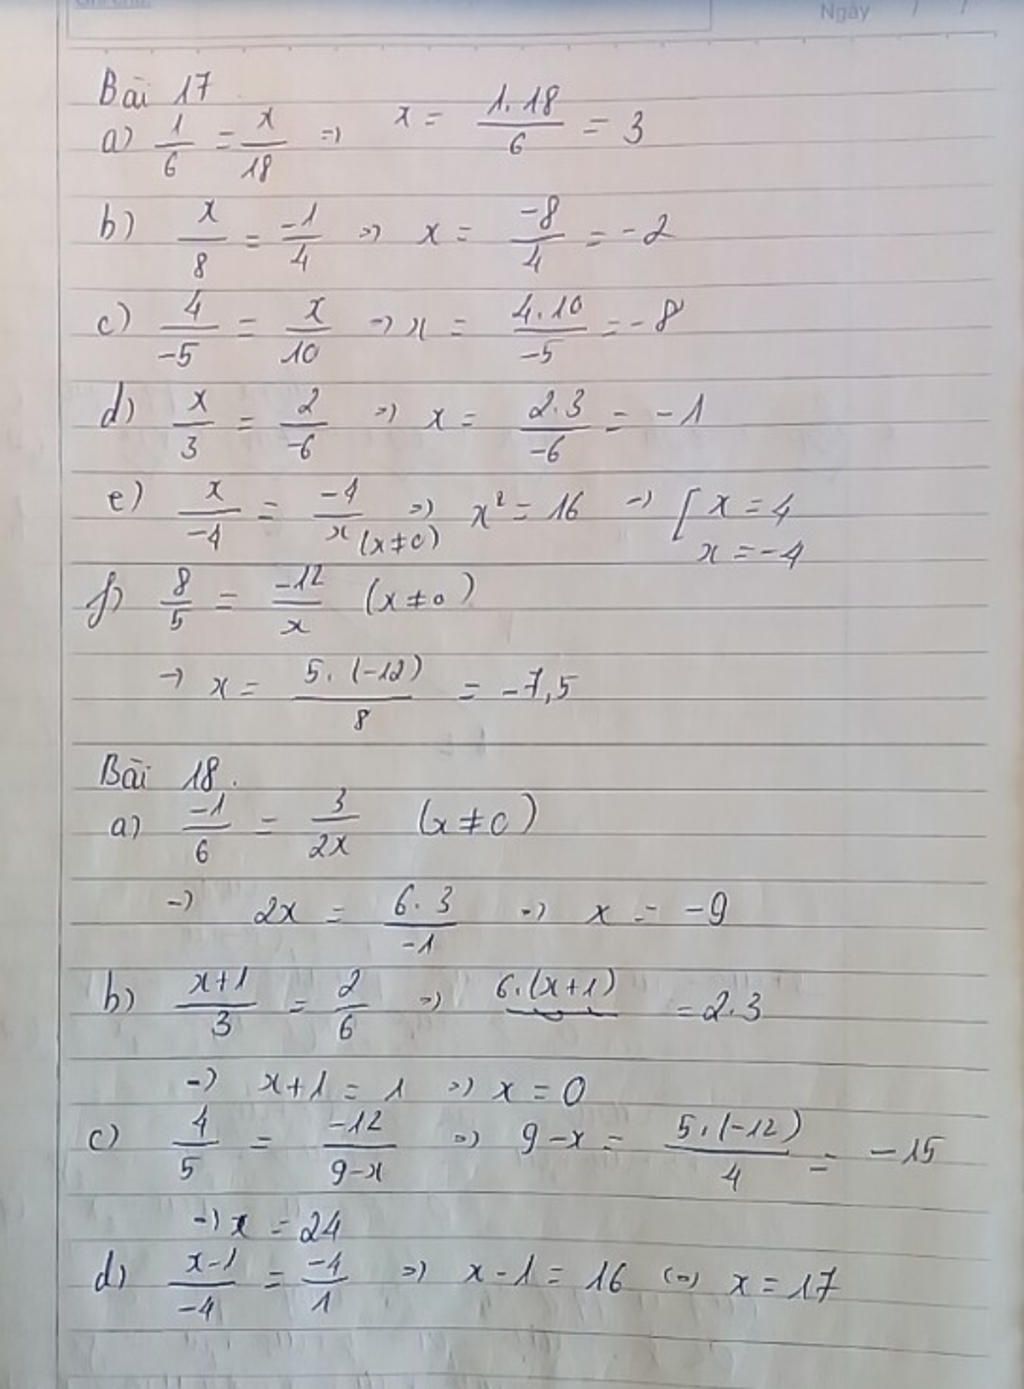 Ngày / /
Bài 17
a) 1/6 = x/18 => x = 1.18/6 = 3
b) x/8 = -1/4 => x = -8/4 = -2
c) 4/-5 = x/10 => x = 4.10/-5 = -8
d) x/3 = 2/-6 => x = 2.3/-6 = -1
e) x/-4 = -4/x (x≠0) => x² = 16 => [ x = 4
x = -4
f) 8/5 = -12/x (x≠0)
=> x = 5.(-12)/8 = -7,5
Bài 18.
a) -1/6 = 3/2x (x≠0)
=> 2x = 6.3/-1 => x = -9
b) x+1/3 = 2/6 => 6.(x+1) = 2.3
=> x+1 = 1 => x = 0
c) 4/5 = -12/9-x => 9-x = 5.(-12)/4 = -15
=> x = 24
d) x-1/-4 = -4/1 => x-1 = 16 <=> x = 17